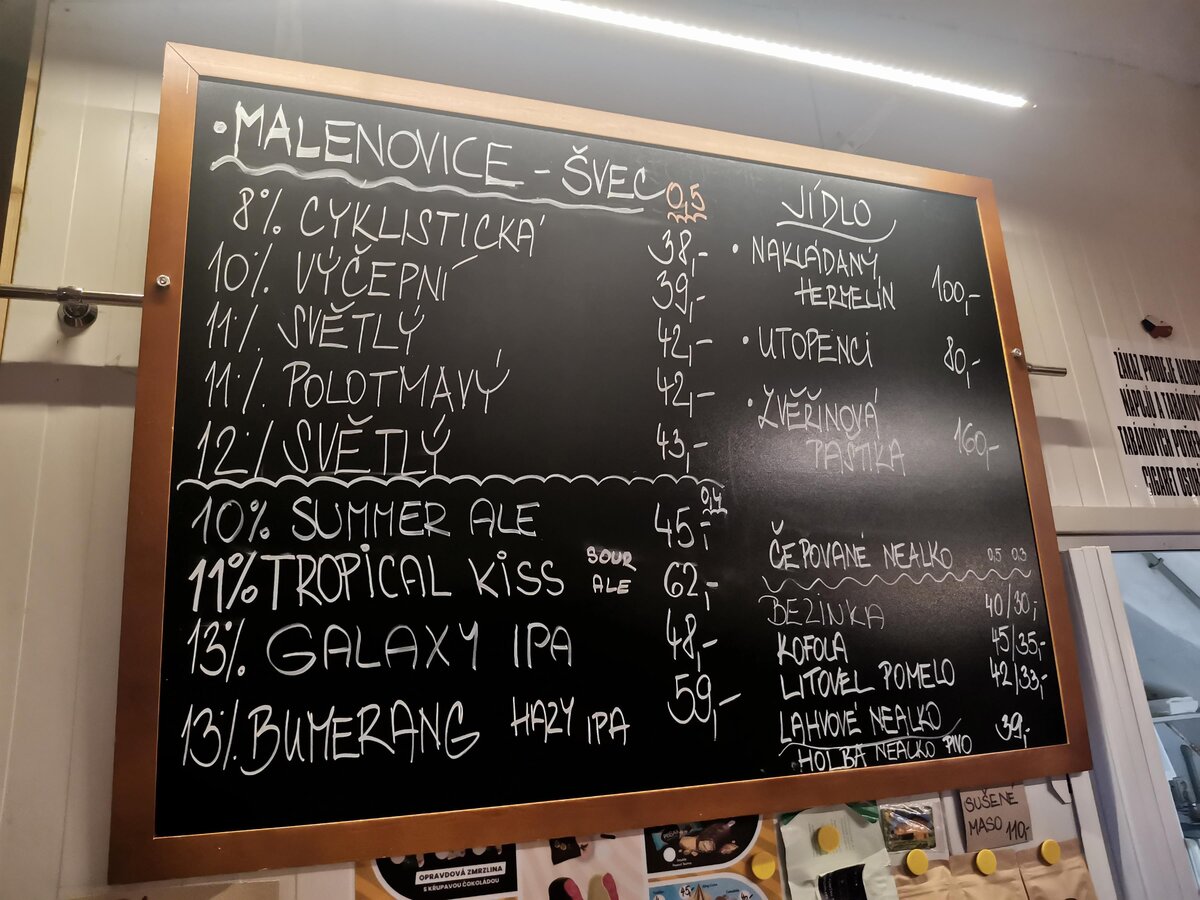 • MALENOVICE - ŠVEC 0,5
8% CYKLISTICKÁ 38,-
10% VÝČEPNÍ 39,-
11% SVĚTLÝ 42,-
11% POLOTMAVÝ 42,-
12% SVĚTLÝ 43,-
0,4
10% SUMMER ALE 45,-
11% TROPICAL KISS SOUR ALE 62,-
13% GALAXY IPA 48,-
13% BUMERANG HAZY IPA 59,-
JÍDLO
• NAKLÁDANÝ
HERMELÍN 100,-
• UTOPENCI 80,-
• ZVĚŘINOVÁ
PAŠTIKA 160,-
ČEPOVANÉ NEALKO 0,5 0,3
BEZINKA 40/30,-
KOFOLA 45/35,-
LITOVEL POMELO 42/33,-
LAHVOVÉ NEALKO 39,-
HOLBA NEALKO PIVO
SUŠENÉ
MASO 110,-
OPRAVDOVÁ ZMRZLINA
S KŘUPAVOU ČOKOLÁDOU